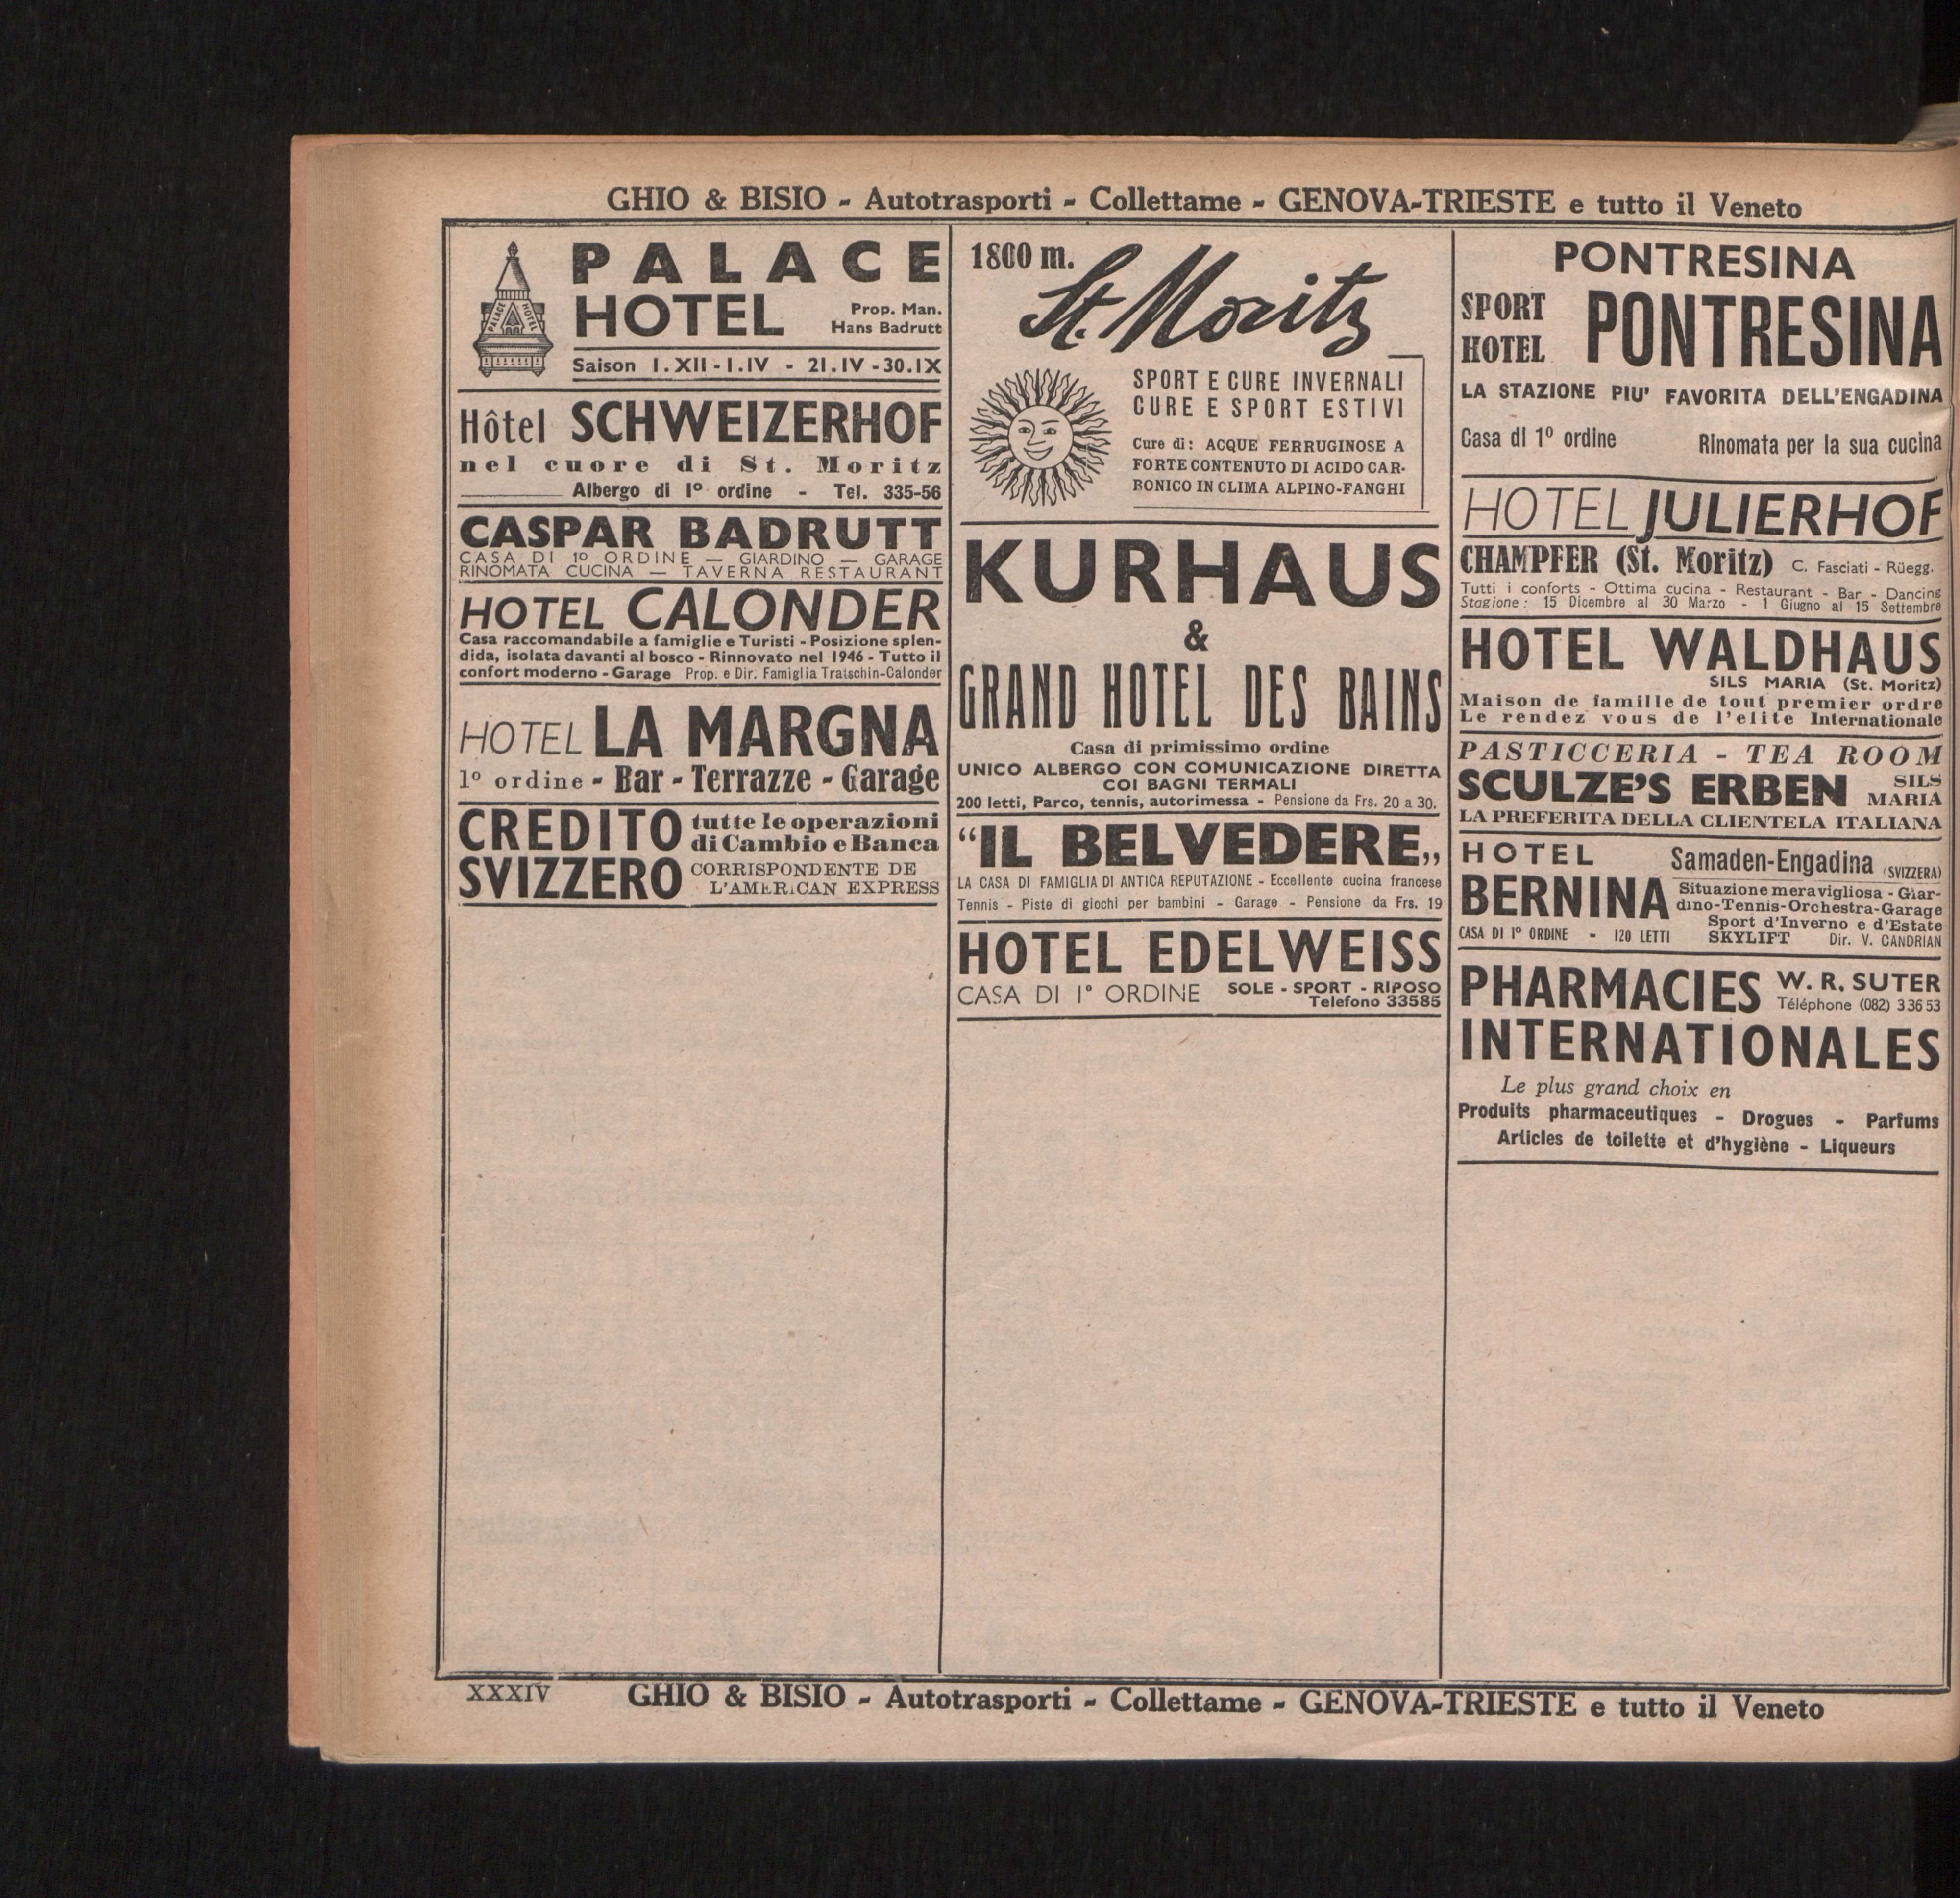 GHIO & BISIO - Autotrasporti - Collettame - GENOVA-TRIESTE e tutto il Veneto
PALACE
HOTEL
Prop. Man.
Hans Badrutt
PALACE HOTEL
Saison 1.XII-1.IV - 21.IV-30.IX
Hôtel SCHWEIZERHOF
nel cuore di St. Moritz
Albergo di 1º ordine - Tel. 335-56
CASPAR BADRUTT
CASA DI 1º ORDINE — GIARDINO — GARAGE
RINOMATA CUCINA — TAVERNA RESTAURANT
HOTEL CALONDER
Casa raccomandabile a famiglie e Turisti - Posizione splen-
dida, isolata davanti al bosco - Rinnovato nel 1946 - Tutto il
confort moderno - Garage Prop. e Dir. Famiglia Tratschin-Calonder
HOTEL LA MARGNA
1º ordine - Bar - Terrazze - Garage
CREDITO
SVIZZERO
tutte le operazioni
di Cambio e Banca
CORRISPONDENTE DE
L'AMERICAN EXPRESS
1800 m.
St. Moritz
SPORT E CURE INVERNALI
CURE E SPORT ESTIVI
Cure di: ACQUE FERRUGINOSE A
FORTE CONTENUTO DI ACIDO CAR-
BONICO IN CLIMA ALPINO-FANGHI
KURHAUS
&
GRAND HOTEL DES BAINS
Casa di primissimo ordine
UNICO ALBERGO CON COMUNICAZIONE DIRETTA
COI BAGNI TERMALI
200 letti, Parco, tennis, autorimessa - Pensione da Frs. 20 a 30.
“IL BELVEDERE„
LA CASA DI FAMIGLIA DI ANTICA REPUTAZIONE - Eccellente cucina francese
Tennis - Piste di giochi per bambini - Garage - Pensione da Frs. 19
HOTEL EDELWEISS
CASA DI 1º ORDINE
SOLE - SPORT - RIPOSO
Telefono 33585
PONTRESINA
SPORT
HOTEL
PONTRESINA
LA STAZIONE PIU' FAVORITA DELL'ENGADINA
Casa di 1º ordine Rinomata per la sua cucina
HOTEL JULIERHOF
CHAMPFER (St. Moritz) C. Fasciati - Rüegg.
Tutti i conforts - Ottima cucina - Restaurant - Bar - Dancing
Stagione: 15 Dicembre al 30 Marzo - 1 Giugno al 15 Settembre
HOTEL WALDHAUS
SILS MARIA (St. Moritz)
Maison de famille de tout premier ordre
Le rendez vous de l'elite Internationale
PASTICCERIA - TEA ROOM
SCULZE'S ERBEN
SILS
MARIA
LA PREFERITA DELLA CLIENTELA ITALIANA
HOTEL
BERNINA
CASA DI 1º ORDINE - 120 LETTI
Samaden-Engadina (SVIZZERA)
Situazione meravigliosa - Giar-
dino-Tennis-Orchestra-Garage
Sport d'Inverno e d'Estate
SKYLIFT Dir. V. CANDRIAN
PHARMACIES
W. R. SUTER
Téléphone (082) 3 36 53
INTERNATIONALES
Le plus grand choix en
Produits pharmaceutiques - Drogues - Parfums
Articles de toilette et d'hygiène - Liqueurs
XXXIV
GHIO & BISIO - Autotrasporti - Collettame - GENOVA-TRIESTE e tutto il Veneto